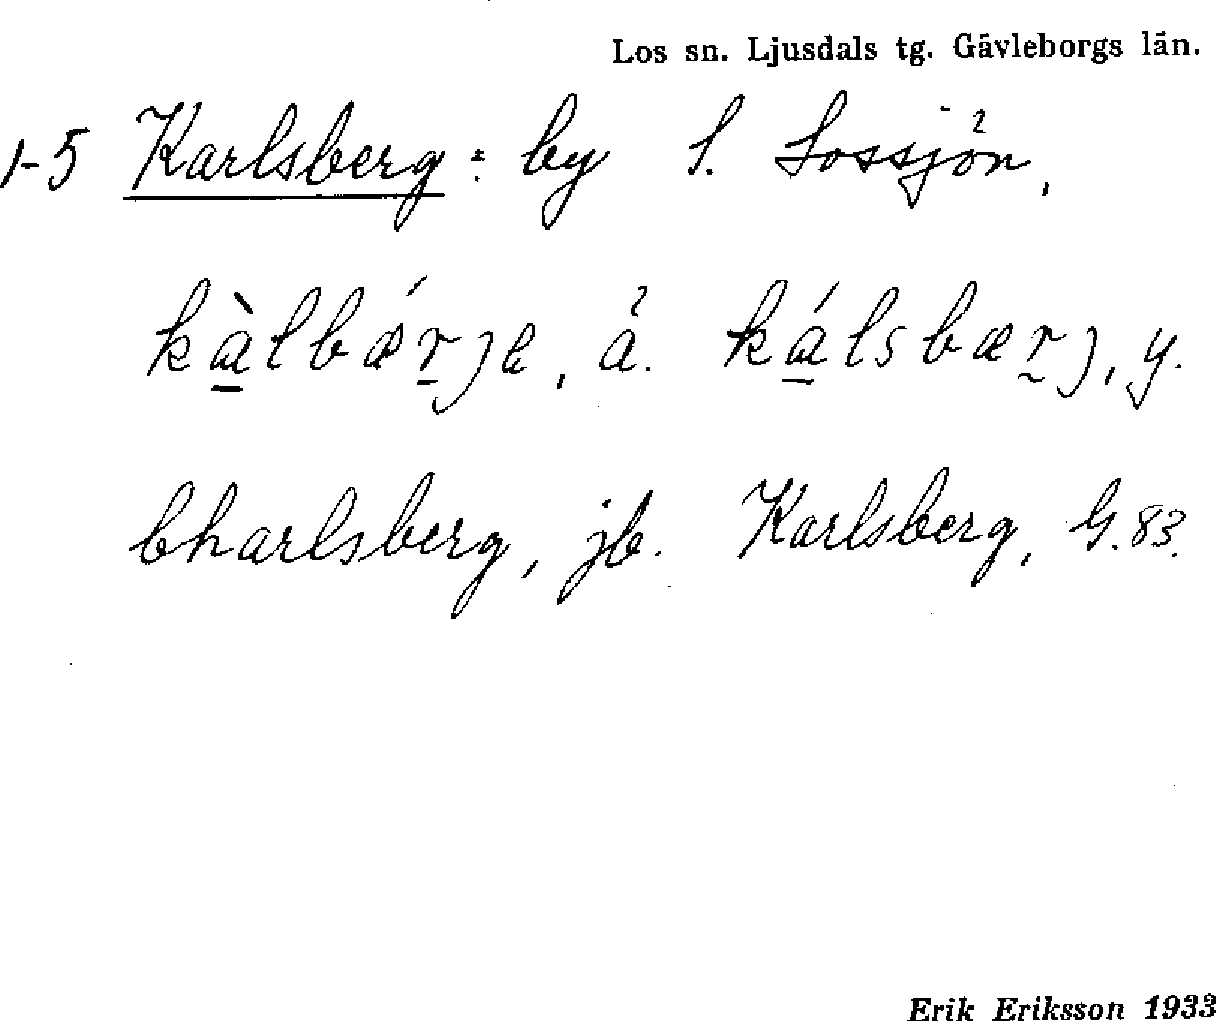 Los sn. Ljusdals tg. Gävleborgs län.
1-5 Karlsberg: by S. Lossjön,
kàlbǽrje, ä. kálsbærj, y.
Charlsberg, jb. Karlsberg, G.83.
Erik Eriksson 1933